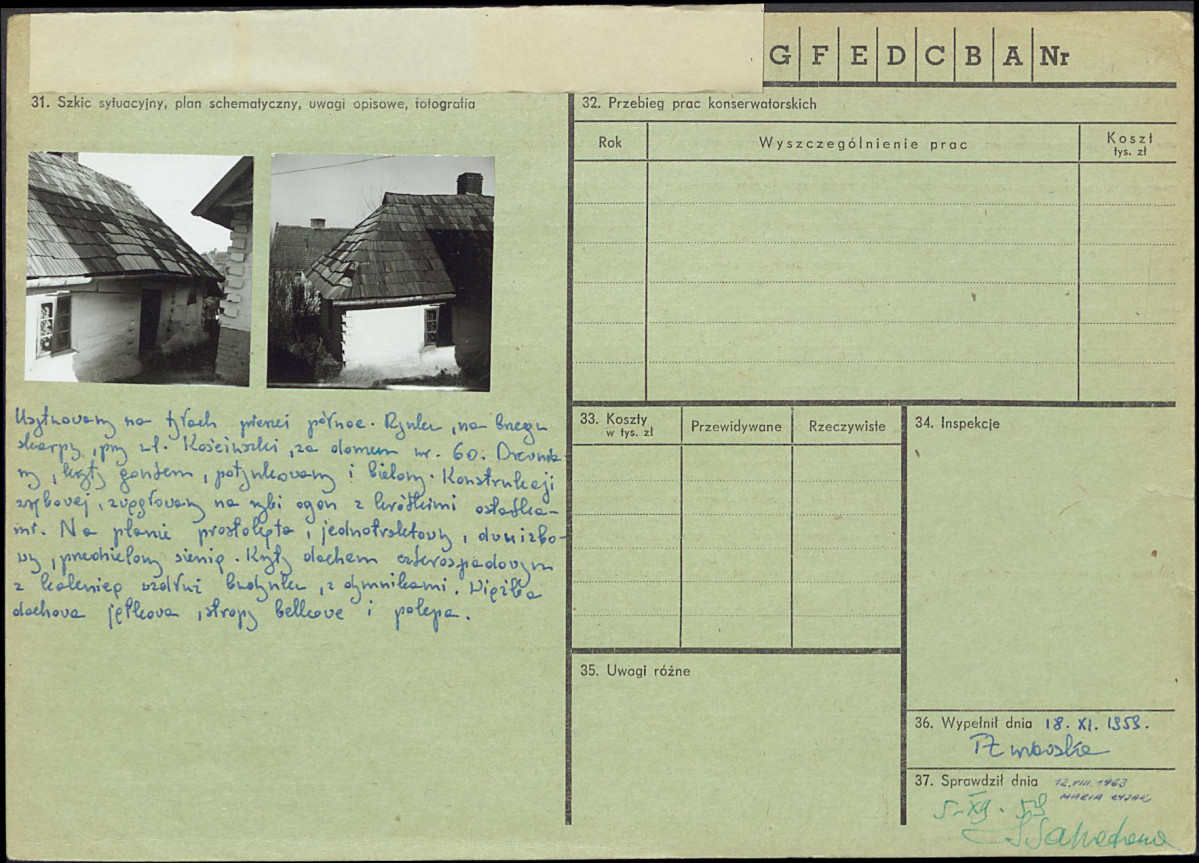 G F E D C B A Nr
31. Szkic sytuacyjny, plan schematyczny, uwagi opisowe, fotografia
Usytuowany na tyłach pierzei północ. Rynku, na brzegu
skarpy, przy ul. Kościuszki, za domem nr. 60. Drewnia-
ny, kryty gontem, potynkowany i bielony. Konstrukcji
zrębowej, zwęgłowany na rybi ogon z krótkimi ostatka-
mi. Na planie prostokąta, jednotraktowy, dwuizbo-
wy, przedzielony sienią. Kryty dachem czterospadowym
z kalenicą wzdłuż budynku, z dymnikami. Więźba
dachowa jętkowa, stropy belkowe i polepa.
32. Przebieg prac konserwatorskich
Rok Wyszczególnienie prac Koszt
tys. zł
33. Koszty
w tys. zł
Przewidywane Rzeczywiste
34. Inspekcje
35. Uwagi różne
36. Wypełnił dnia 18. XI. 1959.
37. Sprawdził dnia 12.VIII.1963
MARIA